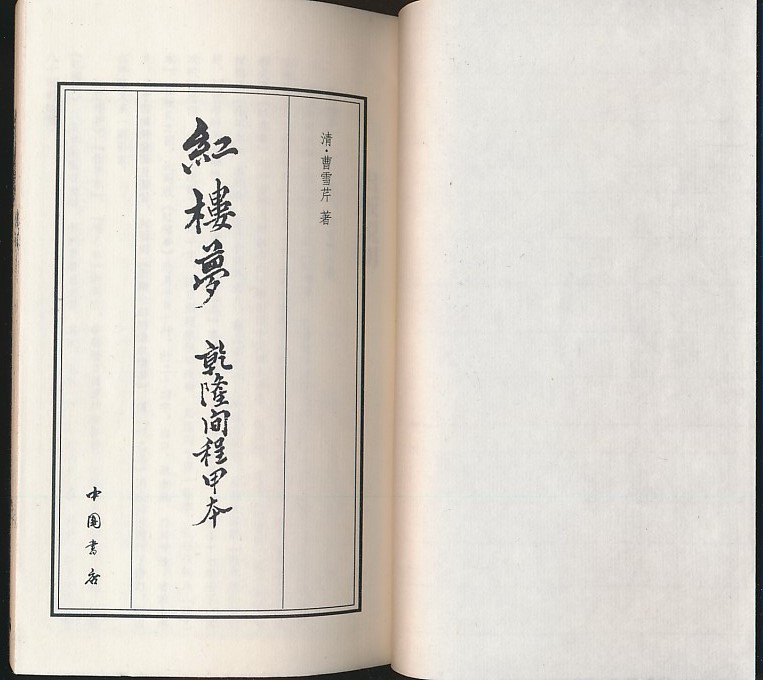 清·曹雪芹 著
紅樓夢 乾隆间程甲本
中国書店